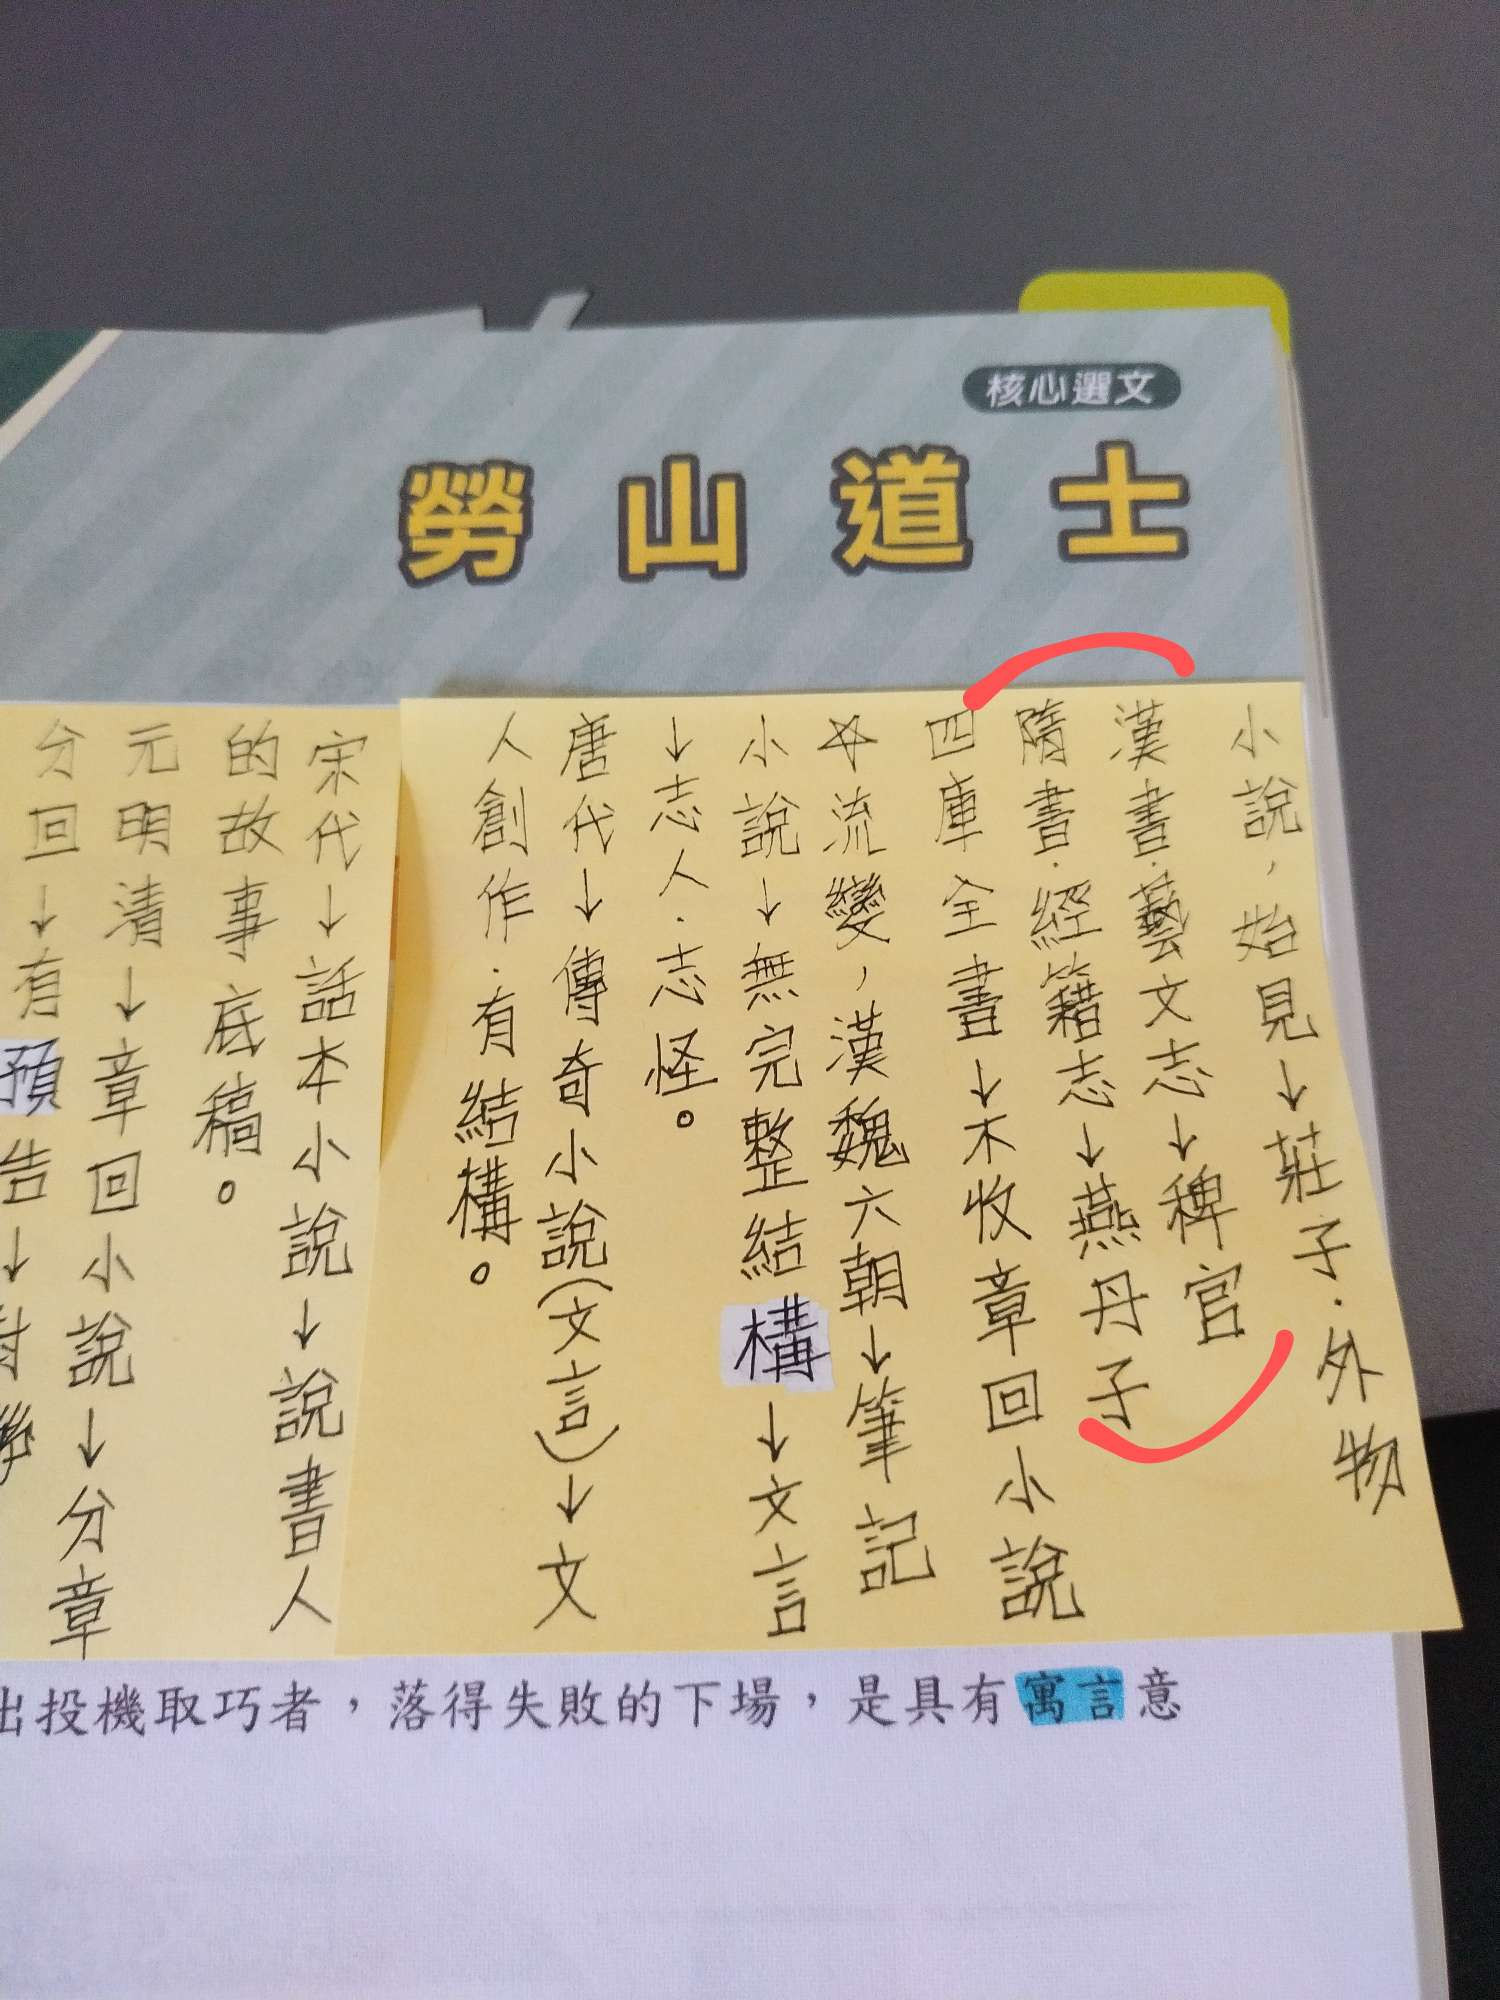 核心選文
勞山道士
小說，始見→莊子·外物
漢書·藝文志→稗官
隋書·經籍志→燕丹子
四庫全書→不收章回小說
☆流變，漢魏六朝→筆記
小說→無完整結構→文言
→志人·志怪。
唐代→傳奇小說(文言)→文
人創作·有結構。
宋代→話本小說→說書人
的故事底稿。
元明清→章回小說→分章
分回→有預告→對
出投機取巧者，落得失敗的下場，是具有寓言意